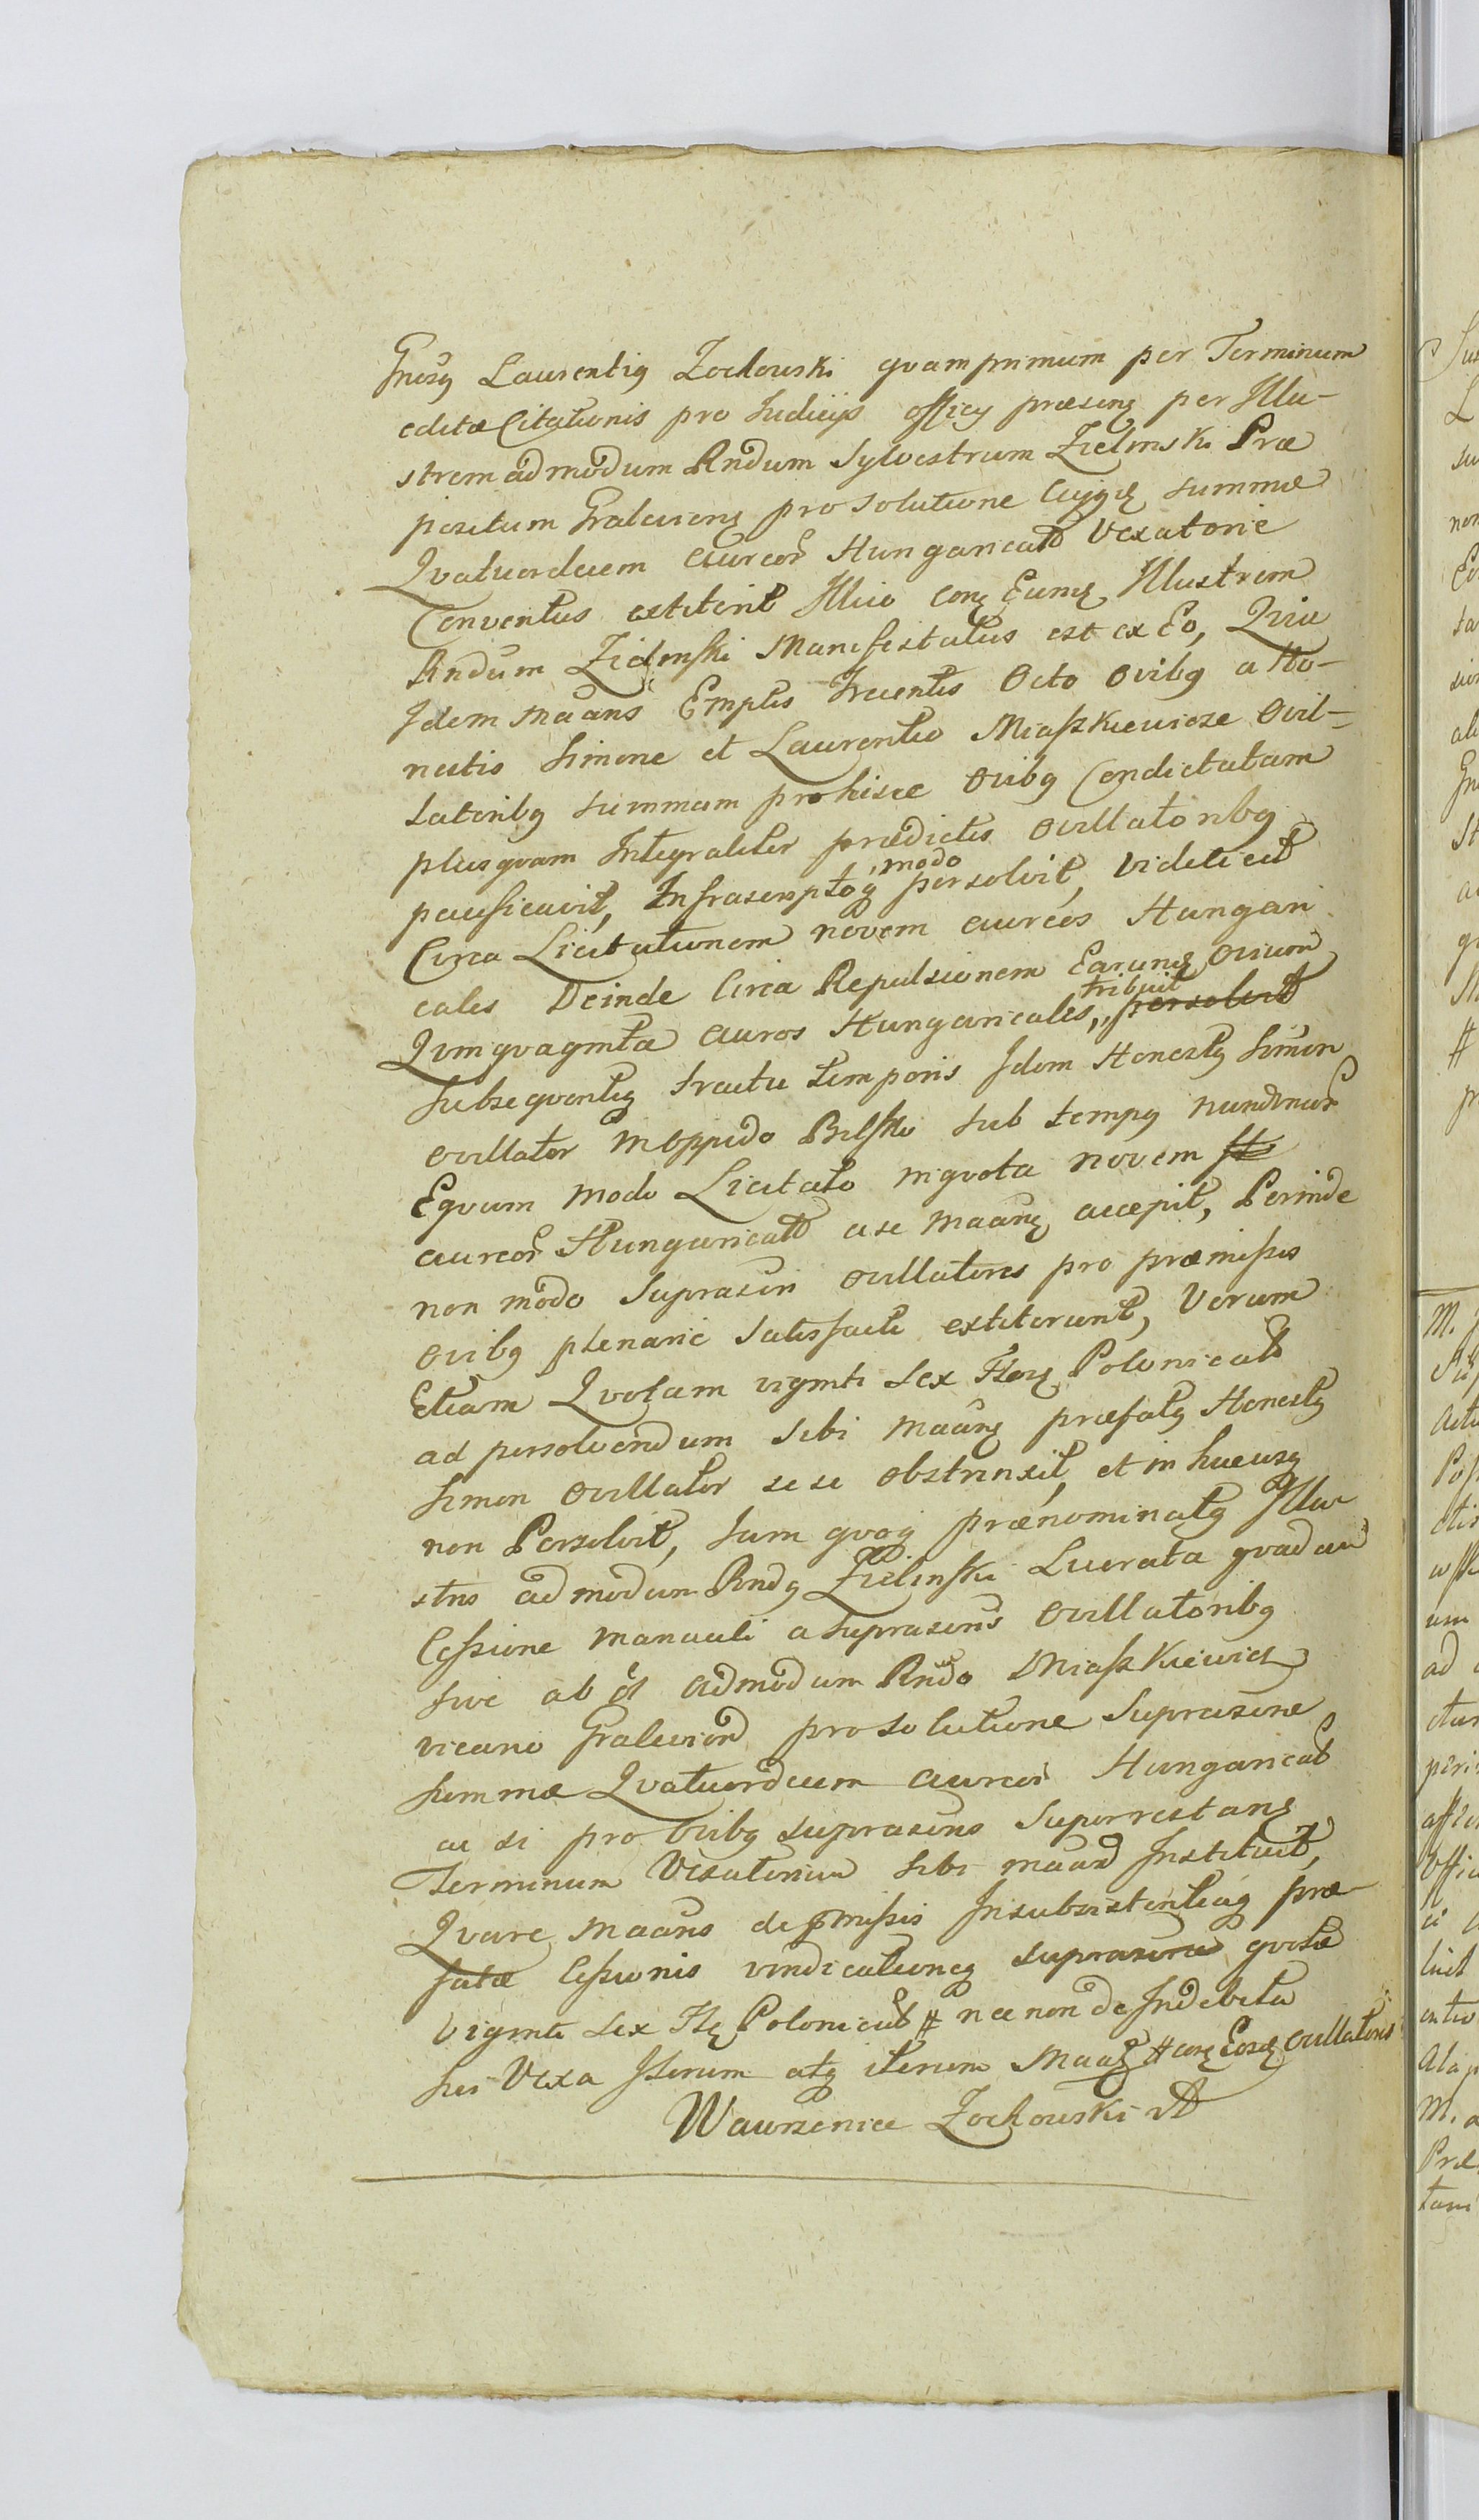 Gnosq Laurentiq Zochowski qvamprimum per Terminum
editæ Citationis pro Judicijs officij præsenq per Illu-
strem admodum Rndum Sylvestrum Zielinski Præ
positum Graleviens pro solutione Cujqd summæ
Qvatuordecim aureor Hungaricalb Vexatorie
Conventus extiterit Illico conq Eumq Illustrem
Rndum Zielinski Manifestatus est ex Eo, Qvia
Idem Maans Emptis Trecentis Octo ovibq a Ho-
nestis Simone et Laurentio Miaszkiewicze Ovil-
latoribq summam pro hisce Ovibq Condictatam
plusqvam Integraliter prædictis ovillatoribq
pacificavit, Infrascriptoq modo persolvit, videlicet
Circa Licitationem novem aureos Hungari
cales Deinde Circa Repulsionem Earumq Ovium
Qvinqvaginta auros Hungaricales, tribuit persolvit
Subseqventeq tractu temporis Idem Honestq Simon
ovillator in Oppido Bilsko sub tempq nundinar
Eqvum modo Licitato in qvota novem
aureor Hungaricalb a se Maanq accepit, Perinde
non modo Suprascri ovillatores pro præmissis
ovibq plenarie satisfacti extiterunt, Verum
Etiam Qvotam viginti sex Flonq Polonicalb
ad persolvendum sibi Maanq præfatq Honestq
Simon ovillator sese obstrinxit, et in hucusq
non Persolvit, Jam qvoq prænominatq Illu
stris admodum Rndq Zielinski Lucrata qvadam
Cessione manuali a suprascris Ovillatoribq
sive ab admodum Rndo Miaszkiewicz
vicario Gralevien pro solutione Suprascrie
summæ Qvatuordecim aureor Hungarical
ac si pro Ovibq suprascris Superrestanq
Terminum Vexatorium sibi maan Instituit,
Qvare Maans de pmissis Insubsistentiaq præ-
fatæ Cessionis vindicationeq suprascriæ qvotæ
viginti sex Flq Polonical # nec non de Indebita
sui Vexa Iterum atq iterum Maaq # conq Eosd ovillatores
Wawrzeniec Zochowski